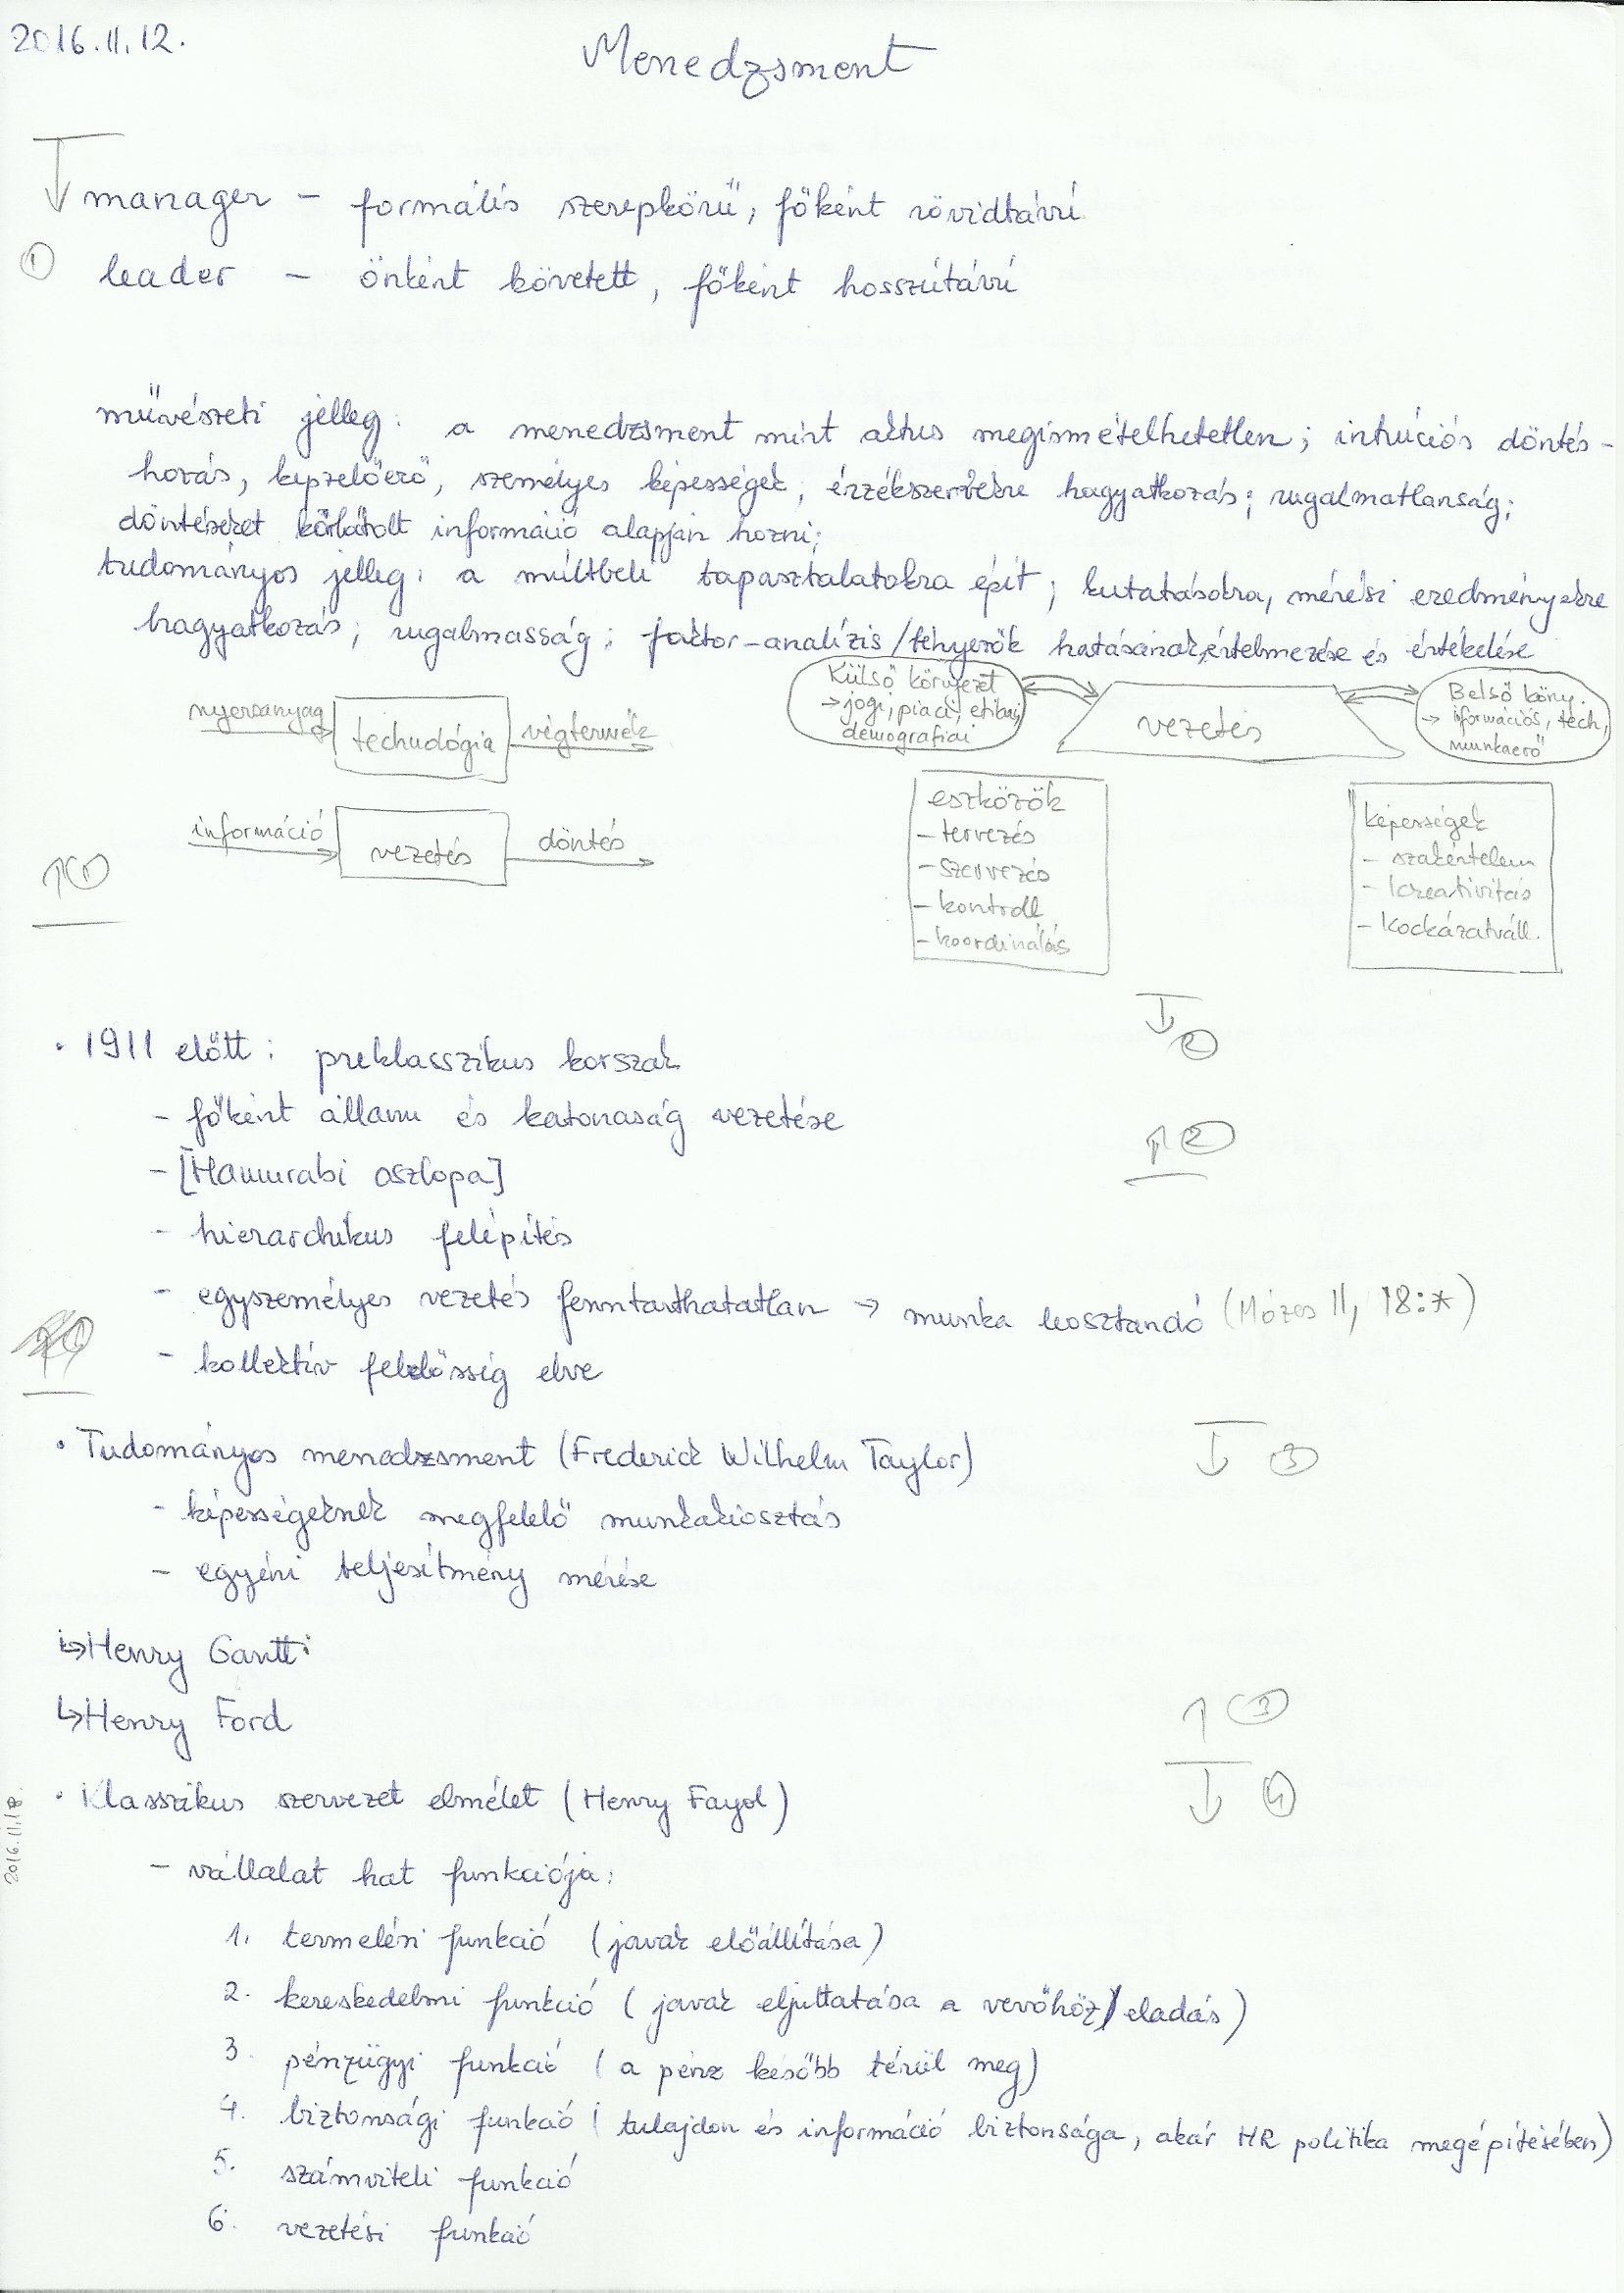 2016.11.12.
Menedzsment
manager – formális szerepkörű, főként rövidtávú
① leader – önként követett, főként hosszútávú
művészeti jelleg: a menedzsment mint aktus megismételhetetlen; intuíciós döntés-
hozás, képzelőerő, személyes képességek; érzékszervekre hagyatkozás; rugalmatlanság;
döntéseket korlátolt információ alapján hozni;
tudományos jelleg: a múltbeli tapasztalatokra épít; kutatásokra, mérési eredményekre
hagyatkozás; rugalmasság; faktor-analízis/tényezők hatásának értelmezése és értékelése
nyersanyag technológia végtermék
információ vezetés döntés
Külső környezet
→ jogi, piaci, etikai,
demográfiai
vezetés
Belső körny.
→ információs, tech,
munkaerő
eszközök
– tervezés
– szervezés
– kontroll
– koordinálás
képességek
– szakértelem
– kreativitás
– kockázatváll.
↑①
↓②
• 1911 előtt: preklasszikus korszak
– főként állam és katonaság vezetése
↑②
– [Hamurabi oszlopa]
– hierarchikus felépítés
– egyszemélyes vezetés fenntarthatatlan → munka kosztandó (Mózes II, 18:*)
– kollektív felelősség elve
• Tudományos menedzsment (Frederick Wilhelm Taylor)
↓ ③
– képességeknek megfelelő munkakiosztás
– egyéni teljesítmény mérése
↳ Henry Gantt
↳ Henry Ford
↑ ③
↓ ④
• Klasszikus szervezet elmélet (Henry Fayol)
2016.11.18.
– vállalat hat funkciója:
1. termelési funkció (javak előállítása)
2. kereskedelmi funkció (javak eljuttatása a vevőhöz/eladás)
3. pénzügyi funkció (a pénz később térül meg)
4. biztonsági funkció (tulajdon és információ biztonsága, akár HR politika megépítésében)
5. számviteli funkció
6. vezetési funkció